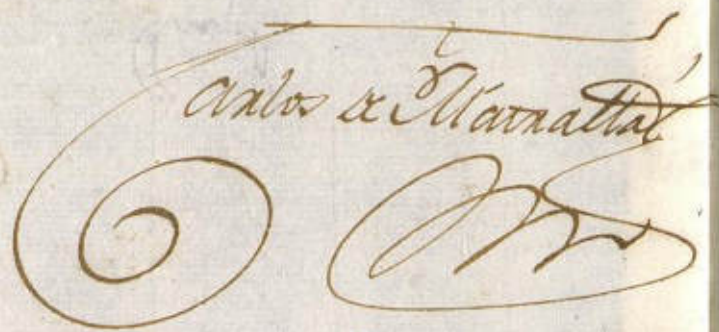 Carlos de Marnattal